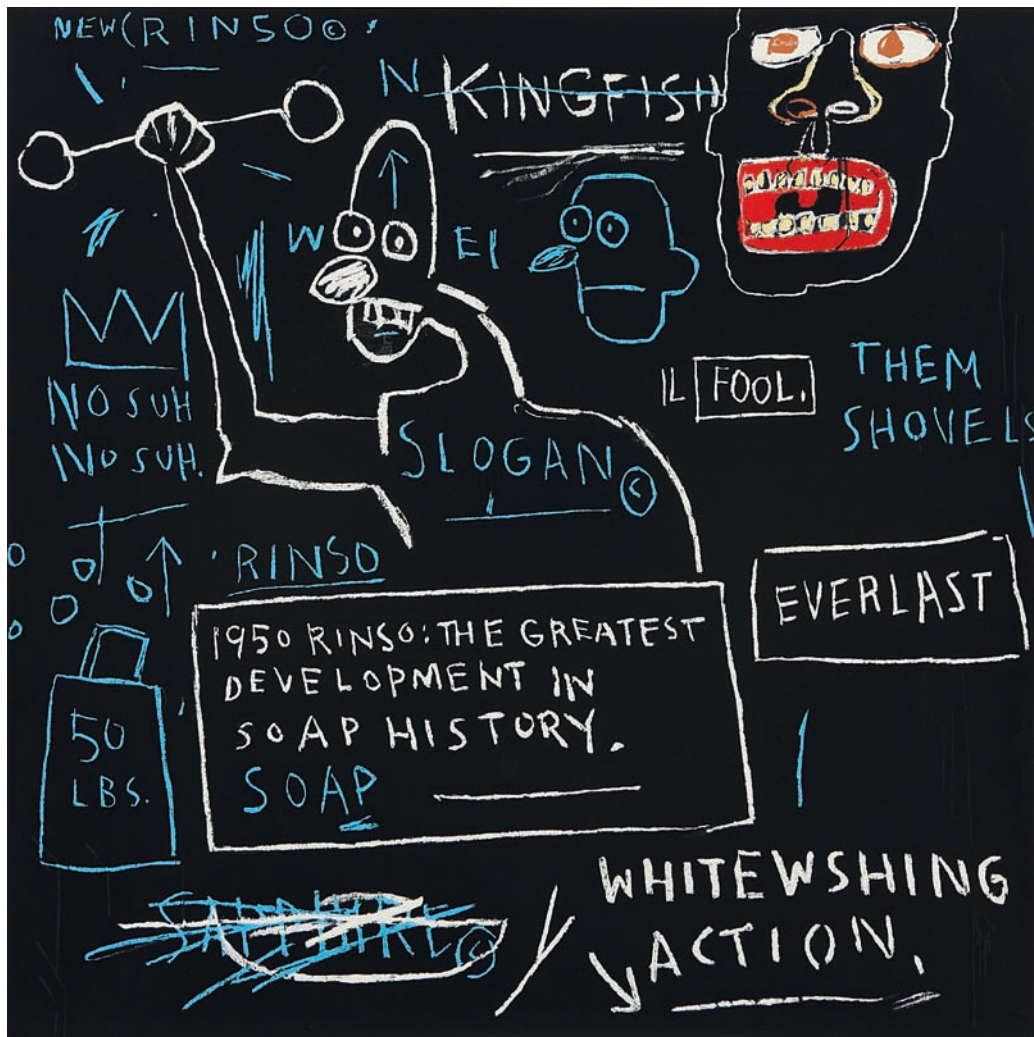 NEW(RINSO©
N KINGFISH
W EI
NO SUH
NO SUH.
IL FOOL.
THEM
SHOVELS
SLOGAN©
RINSO
1950 RINSO: THE GREATEST
DEVELOPMENT IN
SOAP HISTORY.
SOAP
EVERLAST
50
LBS.
SAPPHIRE©
WHITEWSHING
ACTION.